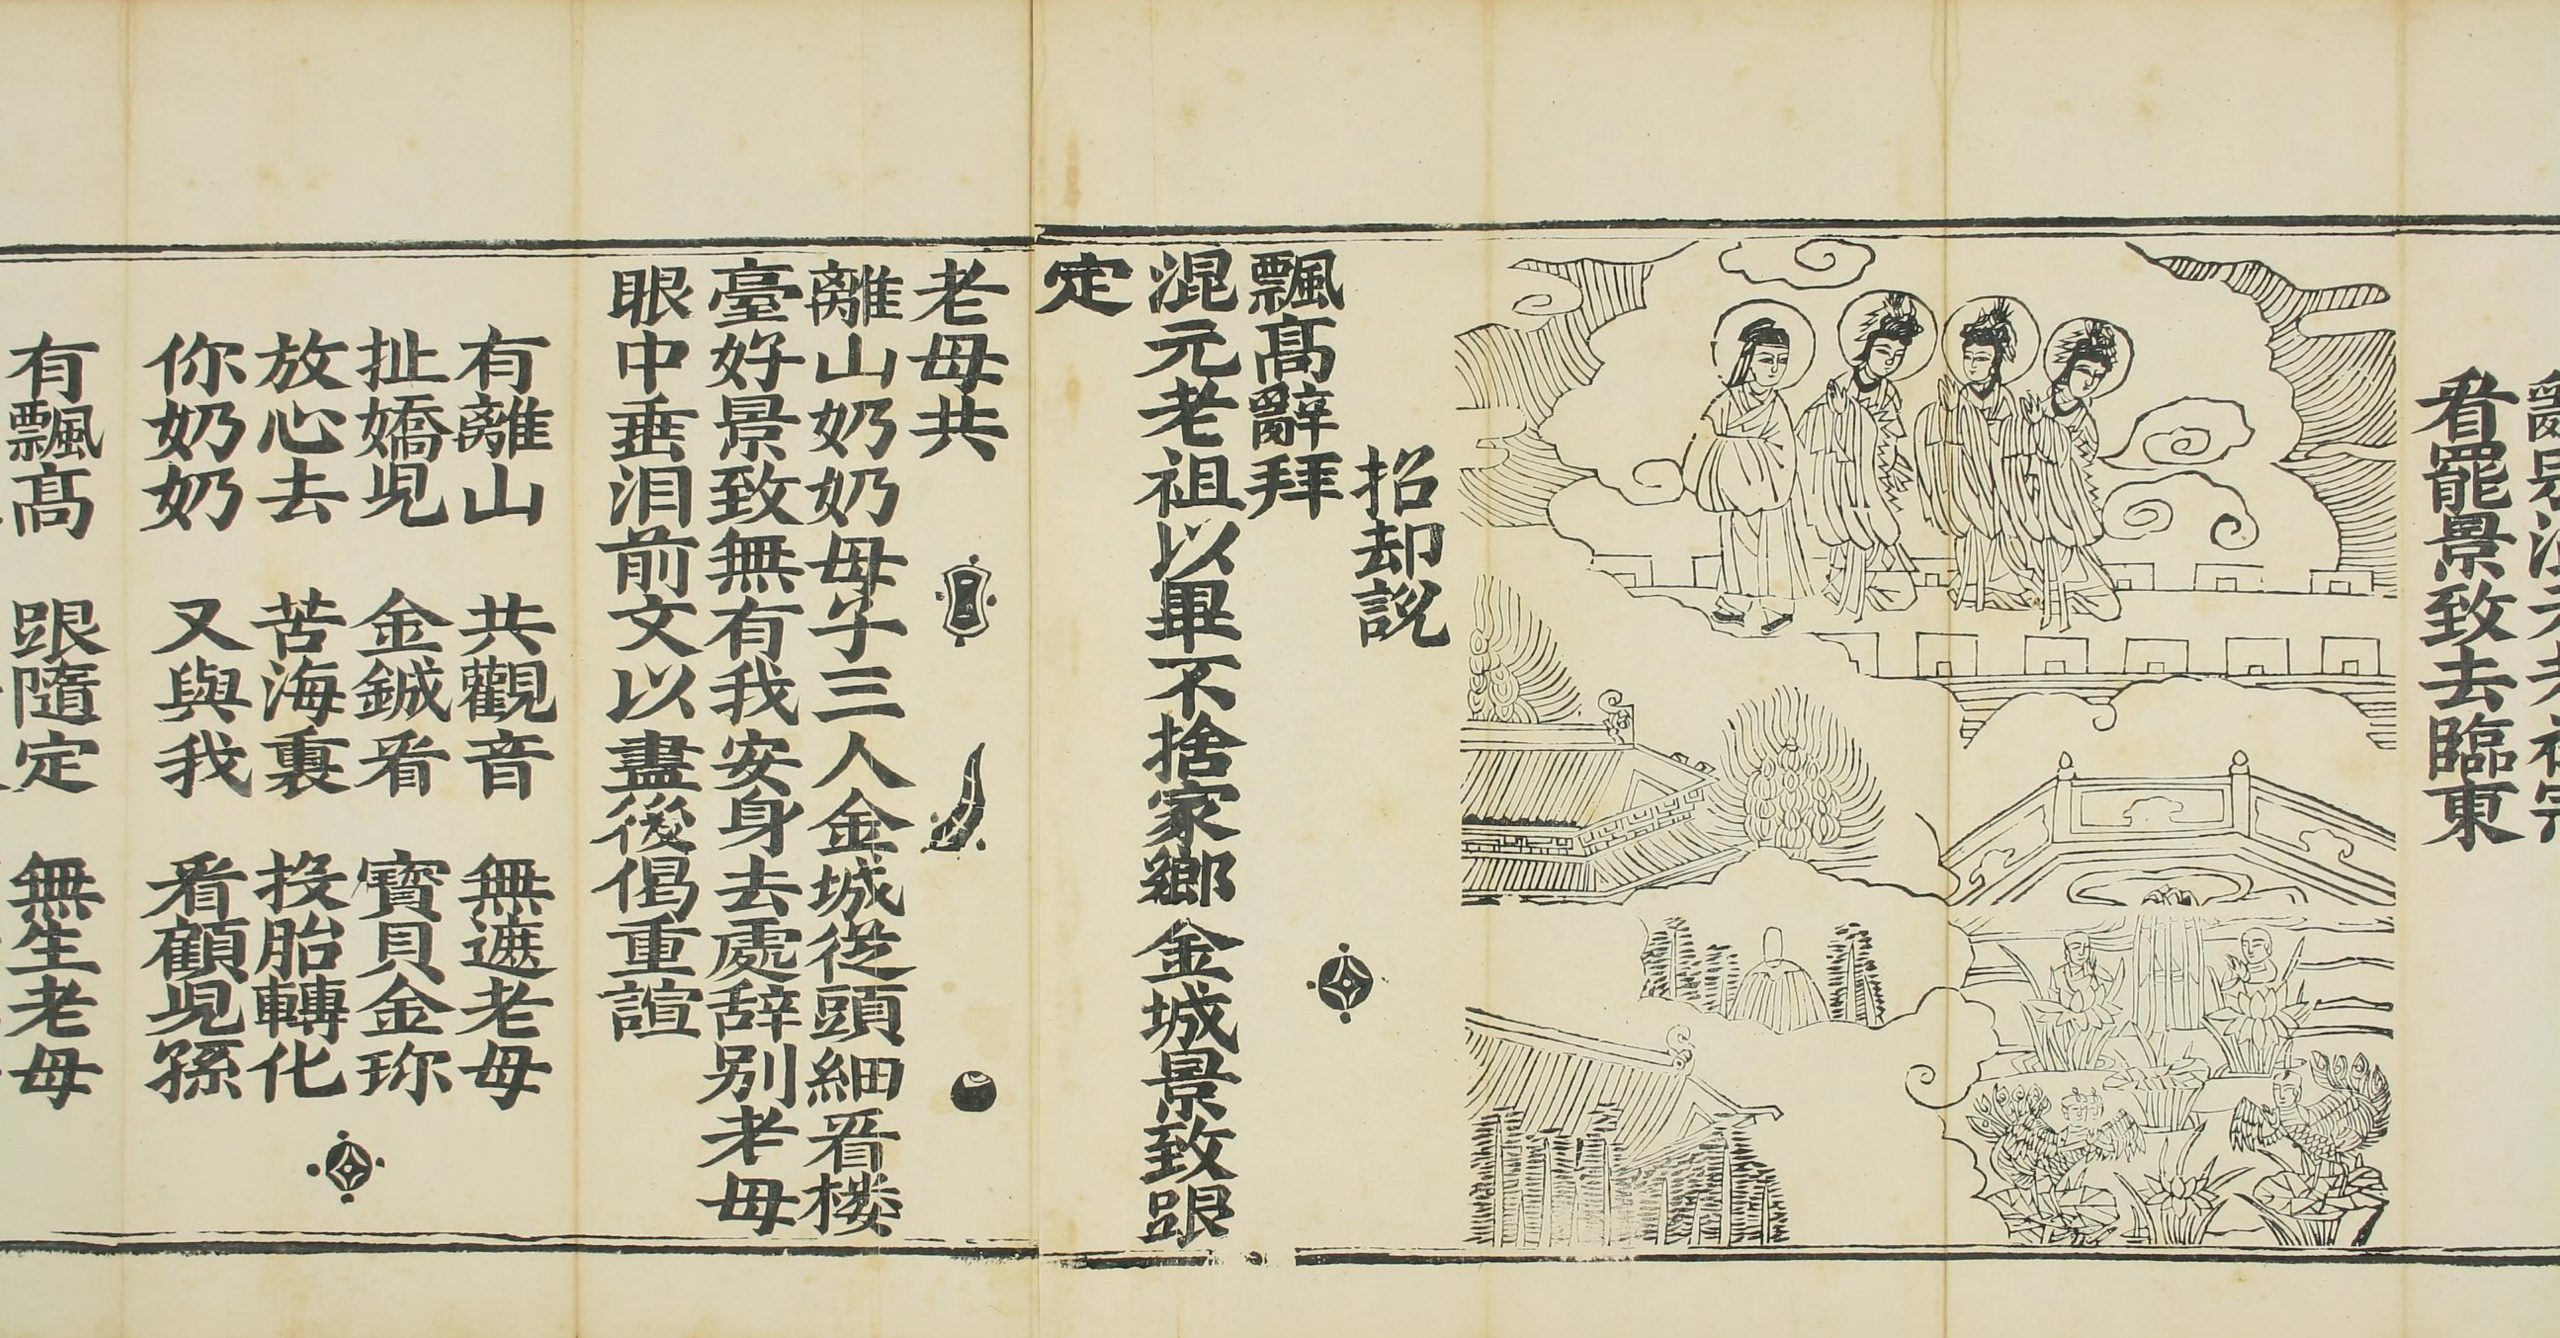 辭別混元老祖宗
看罷景致去臨東
招却説
飄髙辭拜
混元老祖以畢不捨家鄉金城景致跟
定
老母共
離山奶奶母子三人金城從頭細看楼
臺好景致無有我安身去處辞别老母
眼中垂泪前文以盡後偈重諠
有離山 共觀音 無遮老母
扯嬌児 金鍼看 寳貝金珎
放心去 苦海裏 投胎轉化
你奶奶 又與我 看顧児孫
有飄髙 跟隨定 無生老母